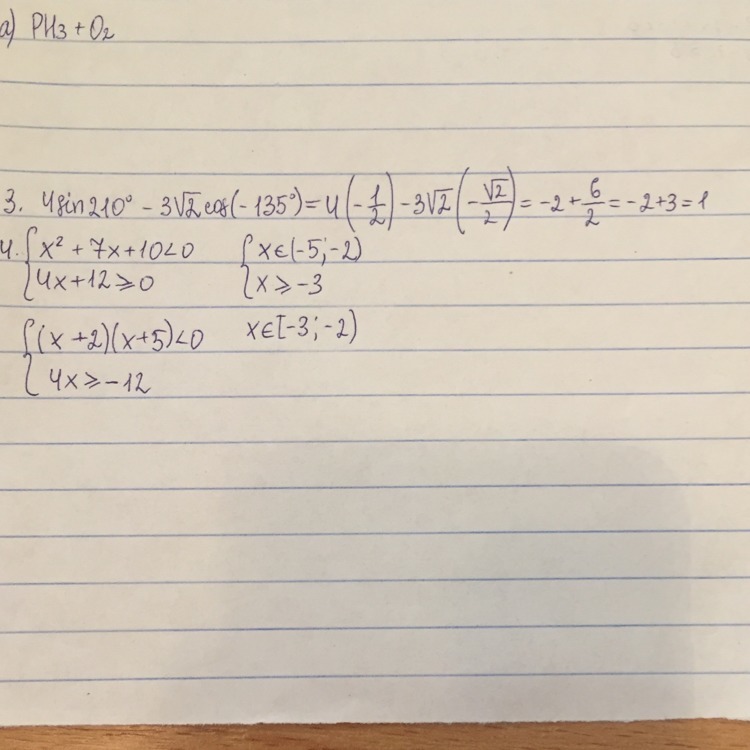 а) PH₃ + O₂
3. 4sin210° - 3√2 cos(-135°) = 4(-1/2) - 3√2(-√2/2) = -2 + 6/2 = -2+3 = 1
4. { x² + 7x + 10 < 0 { x ∈ (-5; -2)
4x + 12 ⩾ 0 x ⩾ -3
{ (x + 2)(x + 5) < 0 x ∈ [-3; -2)
4x ⩾ -12